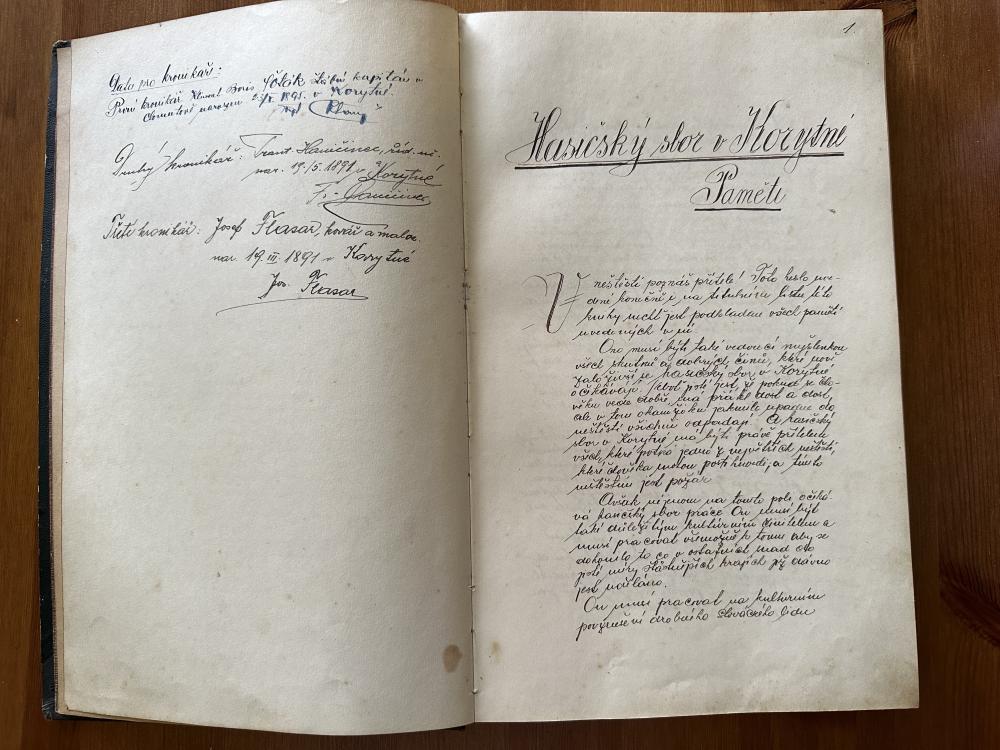 Data pro kronikář:
První kronikář Boris Šošák štábní kapitán v
narozen 1895. v Korytné.
Druhý kronikář: Frant. Haničinec, říd. uč.
nar. 19./5. 1891 v Korytné
Fr. Haničinec
Třetí kronikář: Josef Flasar, kovář a malor.
nar. 19. III. 1891 v Korytné
Jos. Flasar
1.
Hasičský sbor v Korytné
Paměti
V neštěstí poznáš přítele! Toto heslo uve-
dené konečně i na titulním listu této
knihy nechť jest podkladem všech pamětí
uvedených v ní.
Ono musí býti také vedoucí myšlenkou
všech skutků a dobrých činů, které nově
založivší se hasičský sbor v Korytné
očekávají. Neboť jisté jest, že pokud se člo-
věku vede dobře, má přátel dost a dost,
ale v tom okamžiku jakmile upadne do
neštěstí všichni odpadají. A hasičský
sbor v Korytné má býti právě přítelem
všech, které potká jedno z největších neštěstí,
které člověka mohou postihnouti, a tímto
neštěstím jest požár.
Avšak nejenom na tomto poli očeká-
vá hasičský sbor práce. On musí býť
také důležitým kulturním činitelem a
musí pracovat všemožně k tomu aby se
dohonilo to co v ostatních snad do
jisté míry šťastnějších krajích již dávno
jest uděláno.
On musí pracovat na kulturním
povznesení drobného slováckého lidu